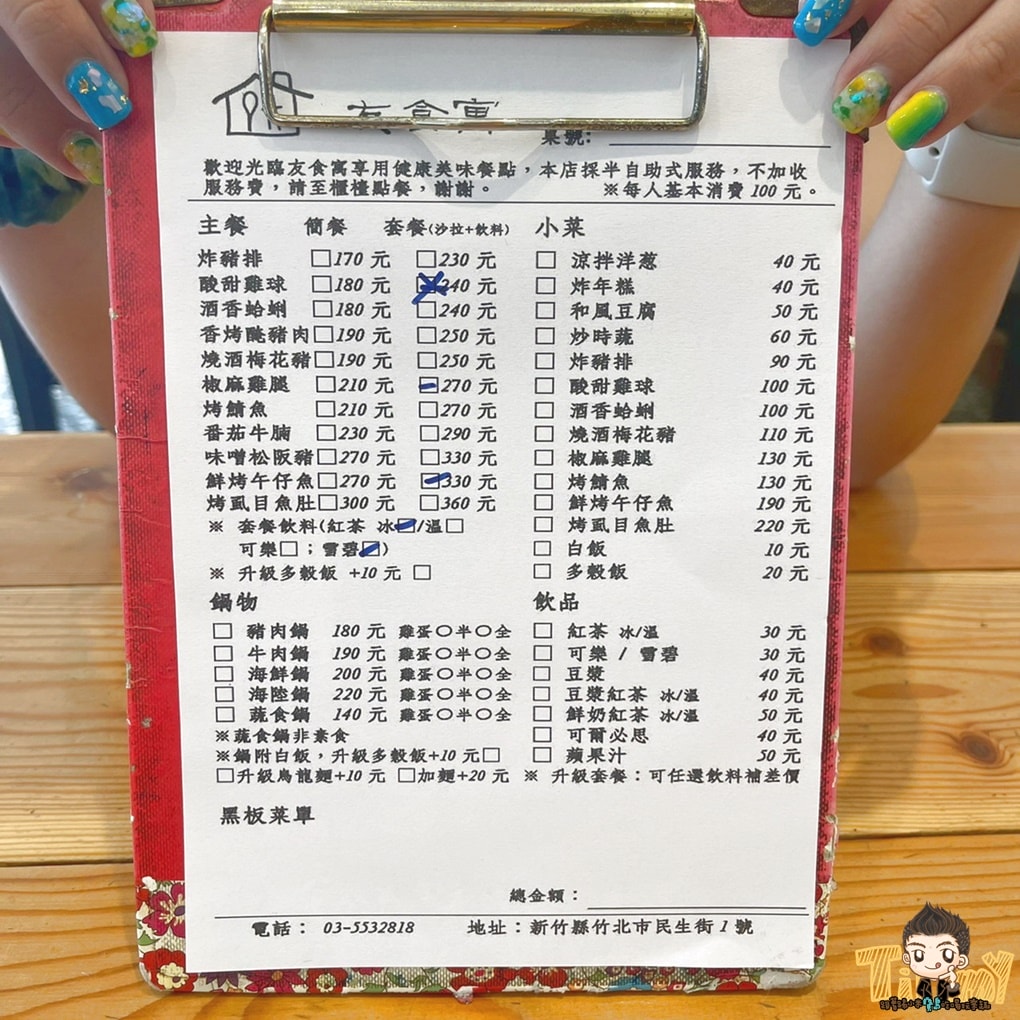 友食寓
桌號:
歡迎光臨友食寓享用健康美味餐點，本店採半自助式服務，不加收
服務費，請至櫃檯點餐，謝謝。 ※每人基本消費 100 元。
主餐 簡餐 套餐(沙拉+飲料)
炸豬排 □170 元 □230 元
酸甜雞球 □180 元 □240 元
酒香蛤蜊 □180 元 □240 元
香烤醃豬肉□190 元 □250 元
燒酒梅花豬□190 元 □250 元
椒麻雞腿 □210 元 □270 元
烤鯖魚 □210 元 □270 元
番茄牛腩 □230 元 □290 元
味噌松阪豬□270 元 □330 元
鮮烤午仔魚□270 元 □330 元
烤虱目魚肚□300 元 □360 元
※ 套餐飲料(紅茶 冰□/溫□
可樂□；雪碧□)
※ 升級多穀飯 +10 元 □
小菜
□ 涼拌洋蔥 40 元
□ 炸年糕 40 元
□ 和風豆腐 50 元
□ 炒時蔬 60 元
□ 炸豬排 90 元
□ 酸甜雞球 100 元
□ 酒香蛤蜊 100 元
□ 燒酒梅花豬 110 元
□ 椒麻雞腿 130 元
□ 烤鯖魚 130 元
□ 鮮烤午仔魚 190 元
□ 烤虱目魚肚 220 元
□ 白飯 10 元
□ 多穀飯 20 元
鍋物
□ 豬肉鍋 180 元 雞蛋○半○全
□ 牛肉鍋 190 元 雞蛋○半○全
□ 海鮮鍋 200 元 雞蛋○半○全
□ 海陸鍋 220 元 雞蛋○半○全
□ 蔬食鍋 140 元 雞蛋○半○全
※蔬食鍋非素食
※鍋附白飯，升級多穀飯+10 元□
□升級烏龍麵+10 元 □加麵+20 元
飲品
□ 紅茶 冰/溫 30 元
□ 可樂 / 雪碧 30 元
□ 豆漿 40 元
□ 豆漿紅茶 冰/溫 40 元
□ 鮮奶紅茶 冰/溫 50 元
□ 可爾必思 40 元
□ 蘋果汁 50 元
※ 升級套餐：可任選飲料補差價
黑板菜單
總金額：
電話： 03-5532818 地址：新竹縣竹北市民生街 1 號